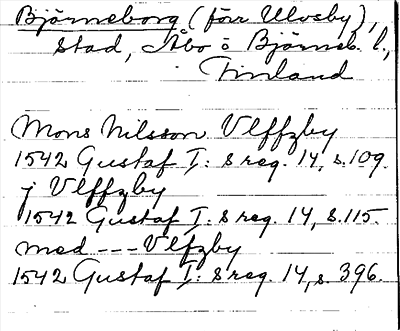 Björneborg (förr Ulvsby),
stad, Åbo o Björneb. l.,
Finland
Mons Nilsson Vlffzby
1542 Gustaf I:s reg. 14, s. 109.
j Vlffzby
1542 Gustaf I:s reg. 14, s. 115.
med --- Vlfzby
1542 Gustaf I:s reg. 14, s. 396.